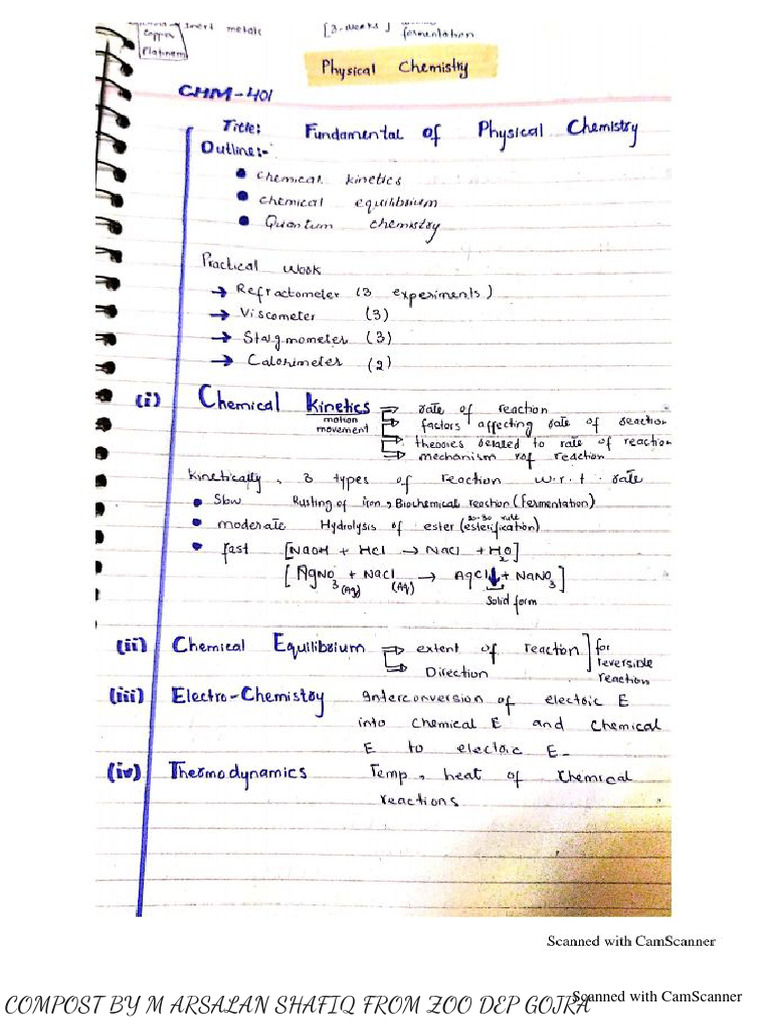 inert metals [3-weeks] fermentation
Copper
Platinum
Physical Chemistry
CHM-401
Title: Fundamental of Physical Chemistry
Outline:-
• Chemical kinetics
• Chemical equilibrium
• Quantum chemistry
Practical Work
→ Refractometer (3 experiments)
→ Viscometer (3)
→ Stalgmometer (3)
→ Calorimeter (2)
(i) Chemical Kinetics
motion
movement
rate of reaction
factors affecting rate of reaction
theories related to rate of reaction
mechanism of reaction
Kinetically, 3 types of reaction w.r.t. rate
• Slow Rusting of iron, Biochemical reaction (fermentation)
• moderate Hydrolysis of ester (esterification)
• fast [NaOH + HCl → NaCl + H2O]
[AgNO3(Aq) + NaCl(Aq) → AgCl↓ + NaNO3]
Solid form
(ii) Chemical Equilibrium
extent of reaction
Direction
for reversible reaction
(iii) Electro-Chemistry Interconversion of electric E
into chemical E and chemical
E to electric E-
(iv) Thermodynamics Temp, heat of chemical
reactions
Scanned with CamScanner
COMPOST BY M ARSALAN SHAFIQ FROM ZOO DEP GOJRA
Scanned with CamScanner